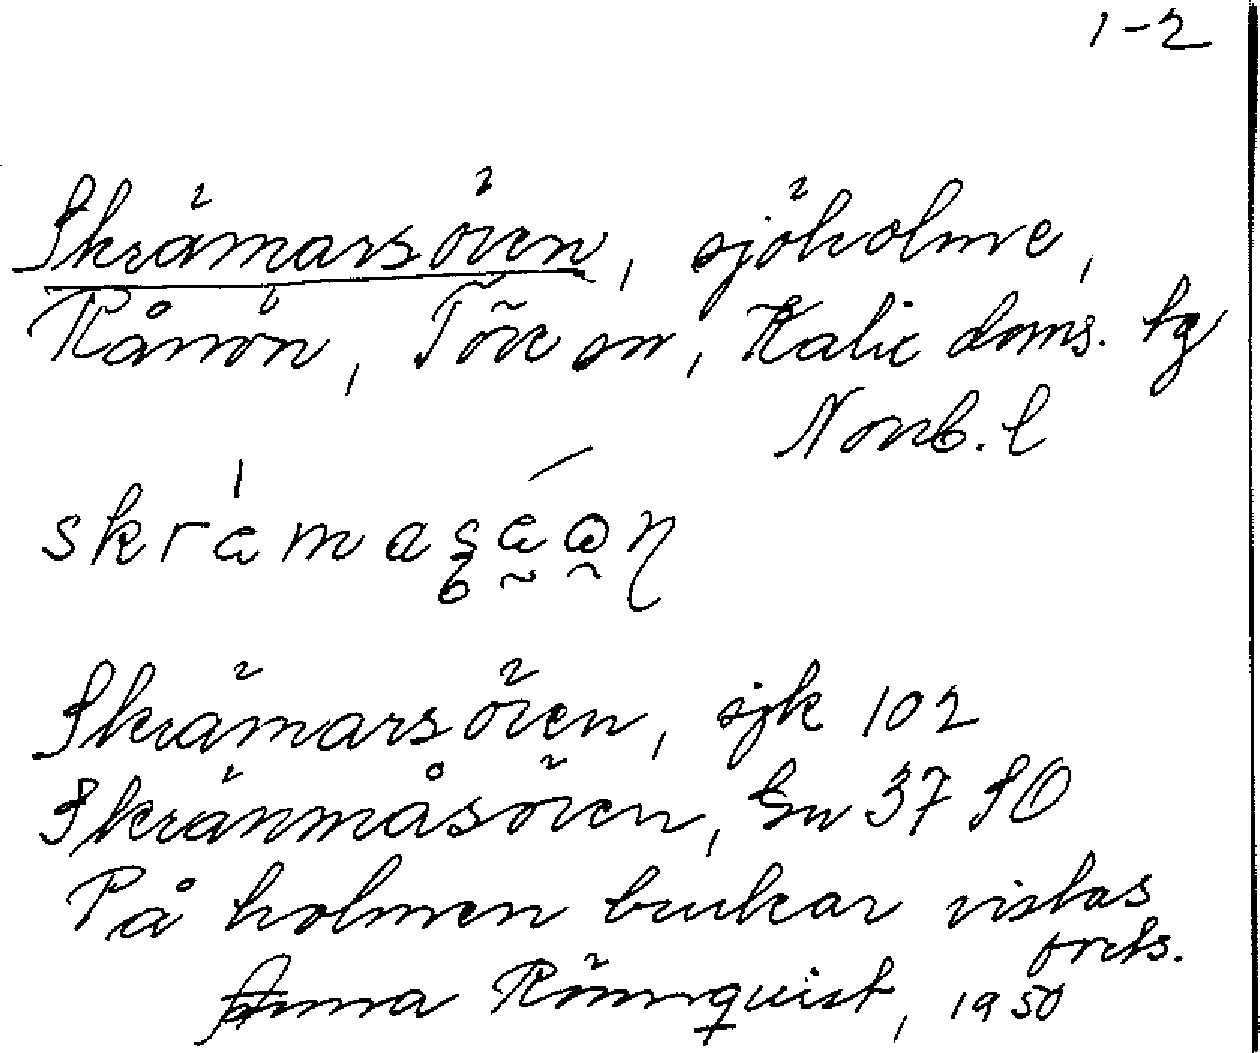 1-2
Skrämarsören, sjöholme,
Rånön, Töre sn, Kalix doms. tg
Norrb. l
Skrämarsören, sjk 102
Skränmåsören, Gn 37 SO
På holmen brukar vistas
forts.
Anna Rönnquist, 1950